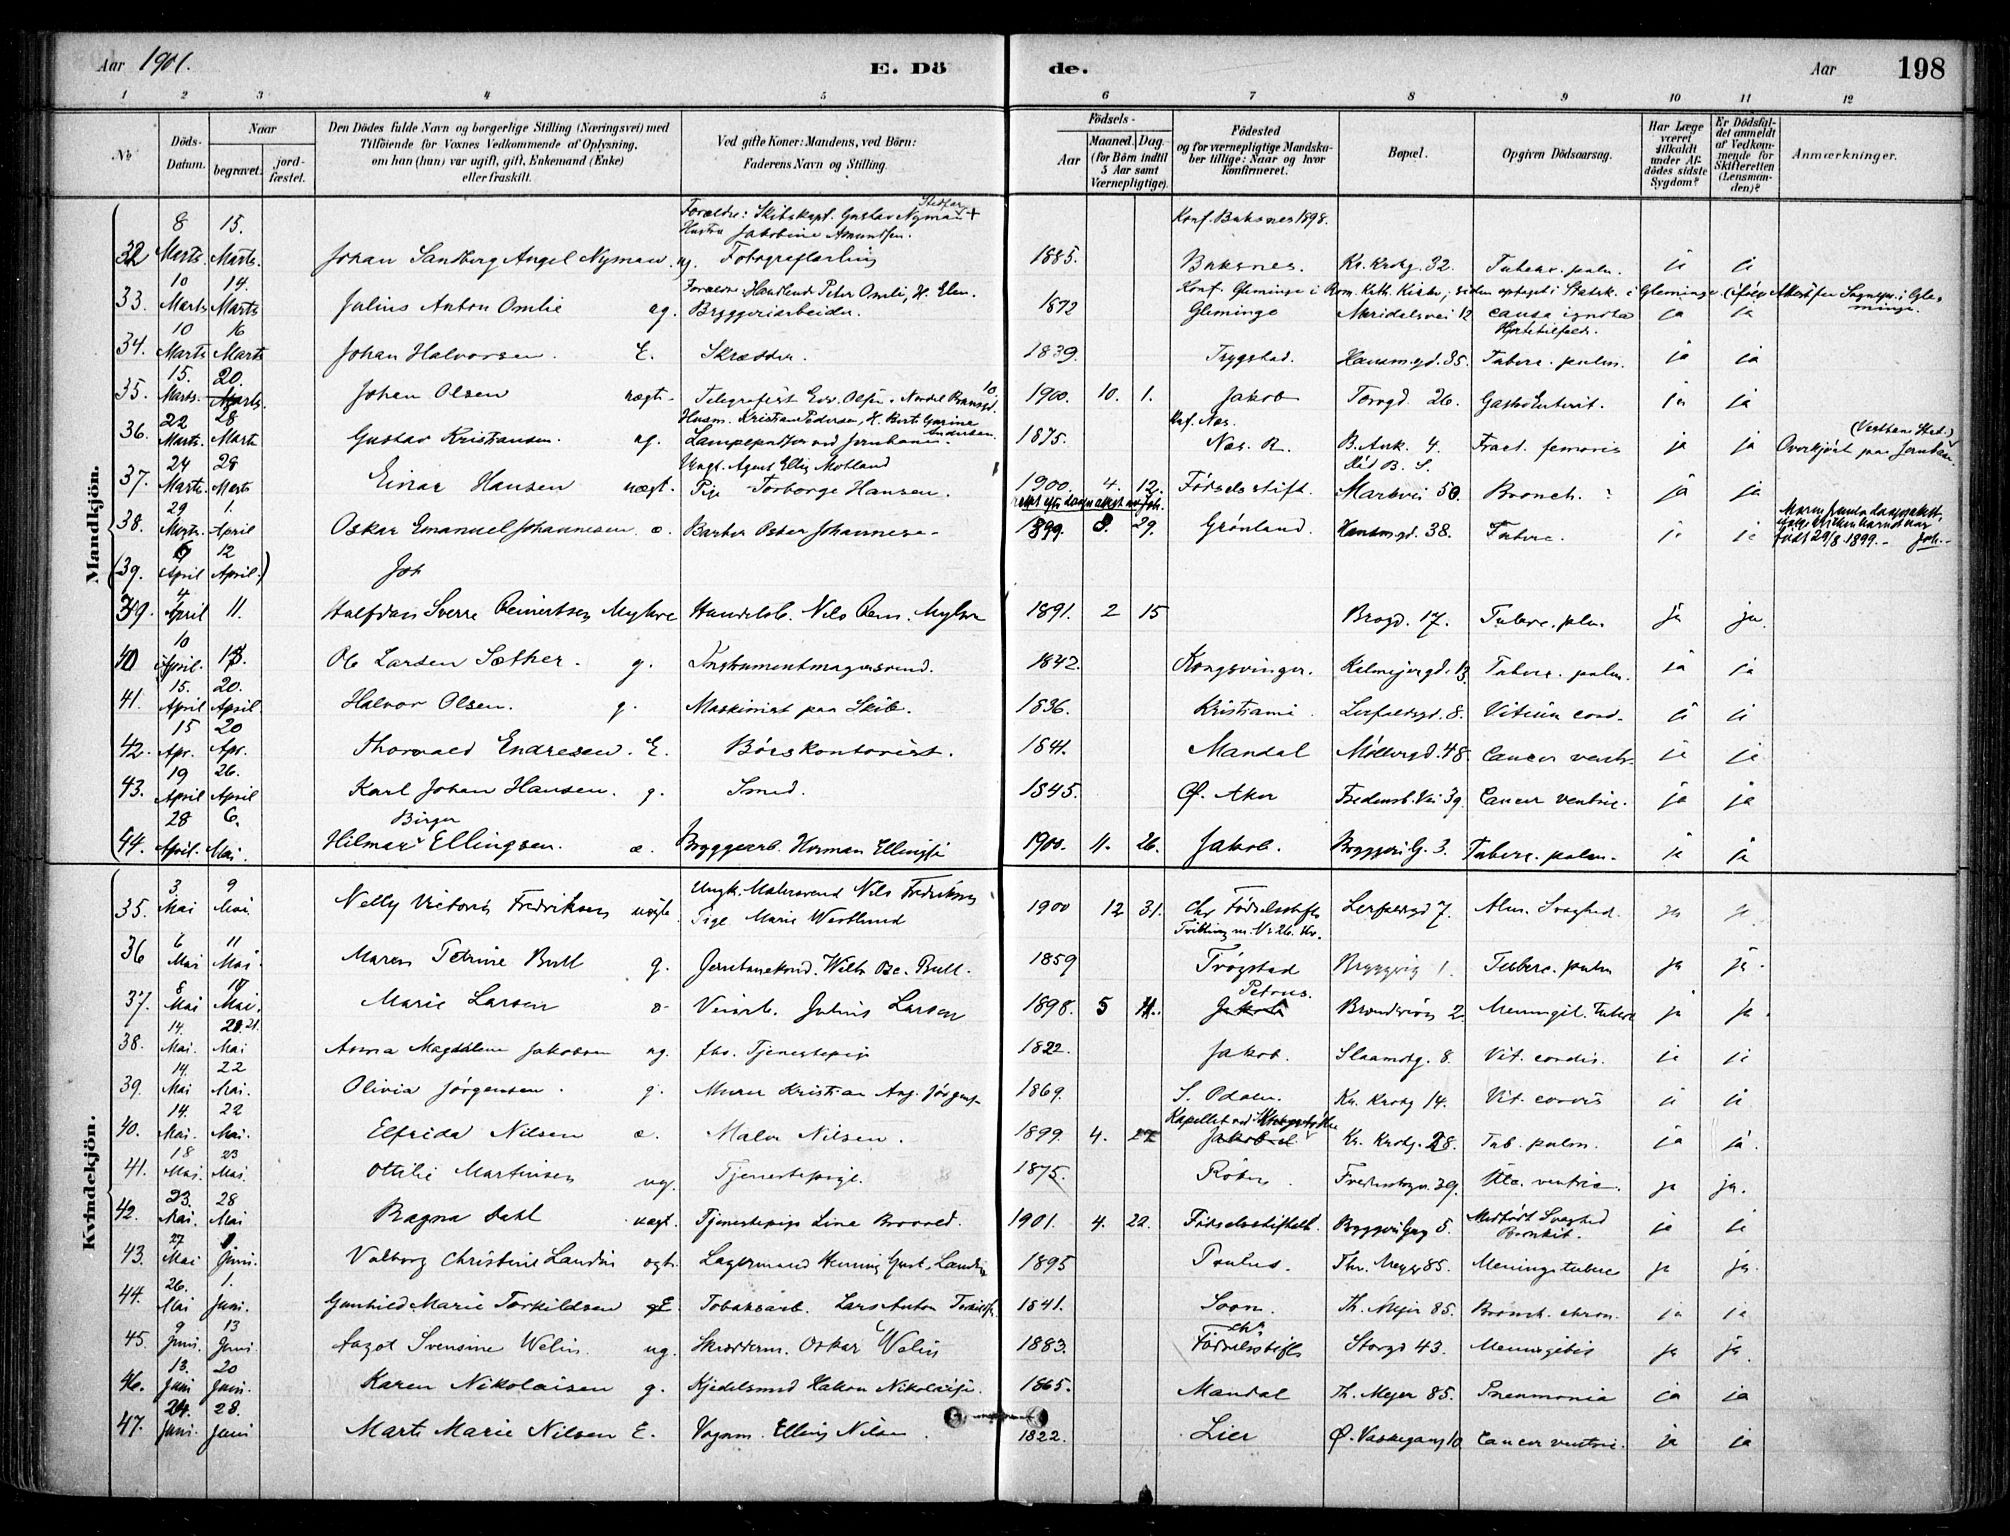 Aar 1901.
E. Dö
de.
Aar
198
1 2 3 4 5 6 7 8 9 10 11 12
No
Döds-Datum.
Naar
begravet.
jordfæstet.
Den Dödes fulde Navn og borgerlige Stilling (Næringsvei) med
Tilföiende for Voxnes Vedkommende af Oplysning,
om han (hun) var ugift, gift, Enkemand (Enke)
eller fraskilt.
Ved gifte Koner: Mandens, ved Börn:
Faderens Navn og Stilling.
Födsels-
Aar
Maaned. Dag.
(for Börn indtil
5 Aar samt
Værnepligtige).
Födested
og for værnepligtige Mandskaber tillige: Naar og hvor
konfirmeret.
Bopæl.
Opgiven Dödsaarsag.
Har Læge
været
tilkaldt
under Afdödes sidste
Sygdom?
Er Dödsfaldet anmeldt
af Vedkommende for
Skifteretten
(Lensmanden)?
Anmærkninger.
Mandkjön.
Forældre: Skibskapt. Gustav Nyman +
Hustru Jakobine Amundsen.
Konf. Buksnes 1898.
32 8 Marts. 15. Marts. Johan Sandberg Angel Nyman. ug. Fotograflærling 1885. Buksnes. Kr. Krohg. 32. Tuberc. pulm. ja ja
Forældre: Handlende Peter Omlie, H. Elen.
Konf. Glemminge i Rom. Kath. Kirke, siden optaget i Statsk. i Glemminge
33. 10 Marts 14. Marts Julius Anton Omlie ug. Bryggeriarbeider. 1872 Glemminge Maridalsvei 12 causa ignota Hjertetilfælde. ja ja
34. 10 Marts 16 Marts Johan Halvorsen. E. Skrædder. 1839. Trygstad. Hausm.gd. 35. Tuberc. pulm. ja ja
35. 15. Marts. 20. Marts. Johan Olsen uægte. Telegrafist Edv. Olsen, Nordal Brunsgd. 10. 1900. 10. 1. Jakob Torvgd. 26. Gastro Enterit. ja ja
Husm. Kristian Pedersen, H. Berte Gurine Andersen.
Konf. Næs.
36. 22 Marts. 28 Marts Gustav Kristiansen. ug. Lampepudser ved Jernbanen. 1875. Næs. R. B. Ank. 4. Fract. femoris ja ja Overkjört paa Jernbanen.
37. 24 Marts. 28 Marts Einar Hansen uægt. Pige Torborge Hansen. 1900. 4. 12. Födselsstift. Markvei 50. Bronch. ja ja
38. 29 Marts. 1. April Oskar Emanuel Johannesen. æ. Barber Peter Johannesen 1899. 8. 29. Grønland. Hausm.gd. 38. Tuberc. ja ja
födt 29/8 1899.
(39. 6 April 12 April.) Joh
39. 4 April 11. Halfdan Sverre Reinertsen Myhre Handelsb. Nils Rein. Myhre 1891. 2 15 Brogd. 17. Tuberc. pulm ja ja.
40 10 April. 18. Ole Larsen Sæther. g. Instrumentmagersvend. 1842. Kongsvinger. Kalmejergd. 13. Tuberc. pulm. ja ja
41. 15. April 20. April. Halvor Olsen. g. Maskinist paa Skib. 1836. Kristiania. Lerfaldsgd. 8. Vitium cord. ja ja
42. 15 Apr. 20 Apr. Thorvald Endresen. E. Börskontorist. 1841. Mandal Möllergd. 48. Cancer ventr. ja ja
43. 19 April 26. April Karl Johan Hansen. g. Smed. 1845. Ø. Aker Fredensb. Vei 39. Cancer ventric. ja ja
44. 28 April. 6. Mai. Hilmar Birger Ellingsen. æ. Bryggearb. Herman Ellingsen 1900. 11. 26. Jakob. Bryggeri G. 3. Tuberc. pulm. ja ja
Kvindekjön.
35. 3 Mai 9 Mai. Nelly Victoria Fredriksen uægte. Ungk. Malersvend Nils Fredriksen Pige Marie Westlund 1900 12 31. Chr. Födselsstift. Lerfaldsgd 7. Alm. Svaghed. ja ja
Tvilling m. Nr 26.
36 6 Mai 11 Mai. Maren Petrine Bull g. Jernbanekond. Wilh. Bull. 1859 Trøgstad Bryggerig 1. Tuberc. pulm ja ja.
37. 8 Mai Mai. Marie Larsen æ Julius Larsen 1898. 5 11. Petrus. Jakob 2. Meningit. Tuberc ja ja.
38. 14. Mai. 21. Mai Anna Magdalene Jakobsen ug. fhv. Tjenestepige 1822. Jakob. 8. Vit. cordis. ja ja
39. 14. Mai 22 Mai. Olivia Jörgensen. g. Murer Kristian Aug. Jörgensen 1869. S. Odalen. Kr. Krohg 14. Vit. cordis ja ja
40. 14. Mai. 22 Mai. Elfrida Nilsen æ. Maler Nilsen. 1899. 4. 27 Jakob Kr. Krohg. 28. Tub. pulm. ja ja.
41. 18 Mai. 23 Mai. Ottilie Martinsen ug. Tjenestepige. 1875. 39. Ulc. ventric. ja ja.
42. 23. Mai. 28 Mai Ragna Dahl uægt. Tjenestepige Lina 1901. 4. 22. Födselsstiftelse. Bryggeri Gang 5. Medfödt Svaghed ja ja
43. 27 Mai 1. Juni. Valborg Christine Landin ægte. Lagermand Henning Gust. Landin 1895 Paulus. Thv. Meyer 85. Mening. tuberc ja ja.
44. 26. Mai 1. Juni. Gunhild Marie Torkildsen E. Tobaksarb. Lars Anton Torkildsen. 1841. Soon. Th. Mejer 85. Bronch. chron. ja ja
45. 9 Juni. 13 Juni Aagot Svensine Welin. ug. Skræderm. Oskar Welin 1883. Chr. Födselsstift Storgd 43. Meningitis ja ja.
46. 13. Juni 20 Juni. Karen Nikolaisen g. Kjedelsmed Hakon Nikolaisen. 1865. Mandal Th. Mejer 85. Pneumonia ja ja
47. 24. Juni. 28. Juni Marte Marie Nilsen E. Vognm. Elling Nilsen. 1822. Lier Ø. Vaskegang 10 Cancer ventric. ja ja